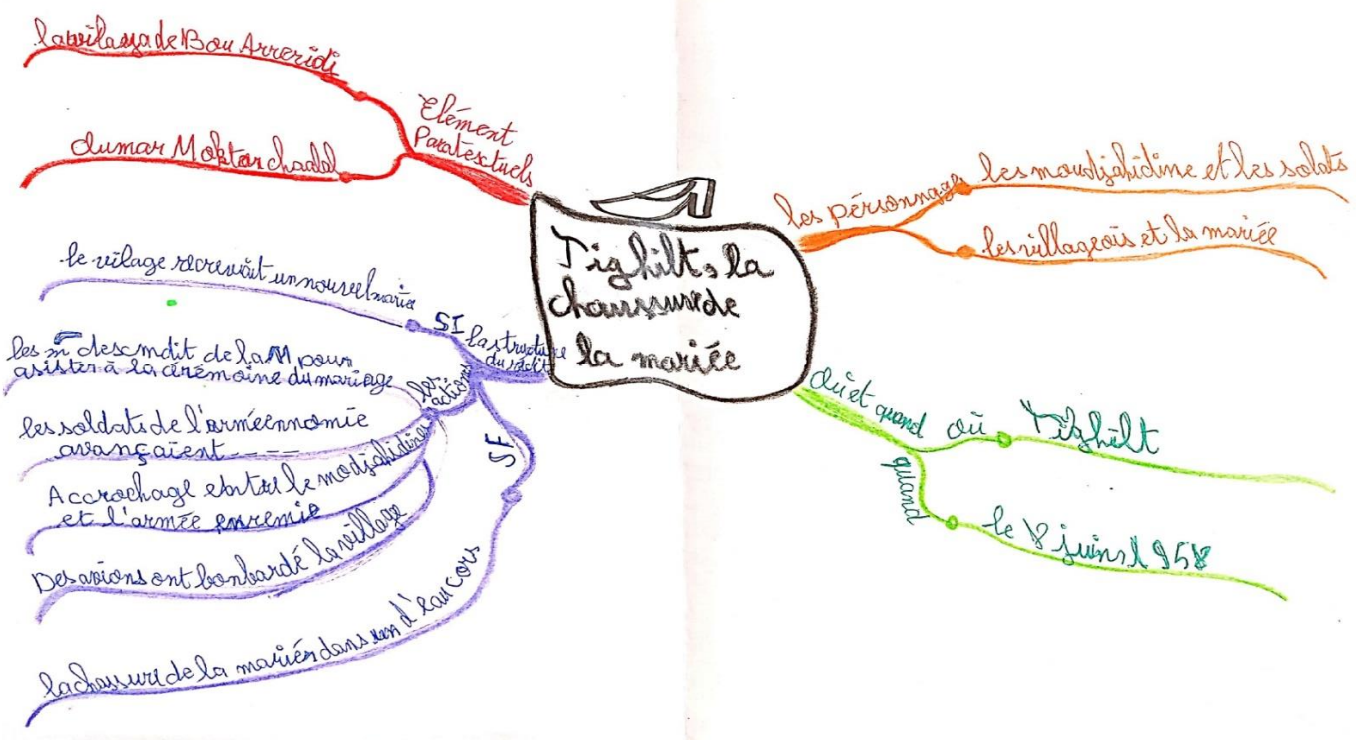 Tighilt, la
chaussure de
la mariée
Elément
Paratextuels
la wilaya de Bou Arreridi
Oumar Moktar chaalal
les pérsonnage
les moudjahidine et les soldts
les villageois et la mariée
Où et quand
où
Tighilt
quand
le 8 juin 1958
la structure
du récit
SI
le vilage recrevait un nouvel marié
les actions
les m descmdit de la M pour
asister à la cérémoine du mariage
les soldats de l'armée ennomie
avançaient ----
Accrochage entre le modjahidine
et l'armée enremie
Des avions ont bonbardé la village
SF
la chassure de la mariée dans un d'eau cors